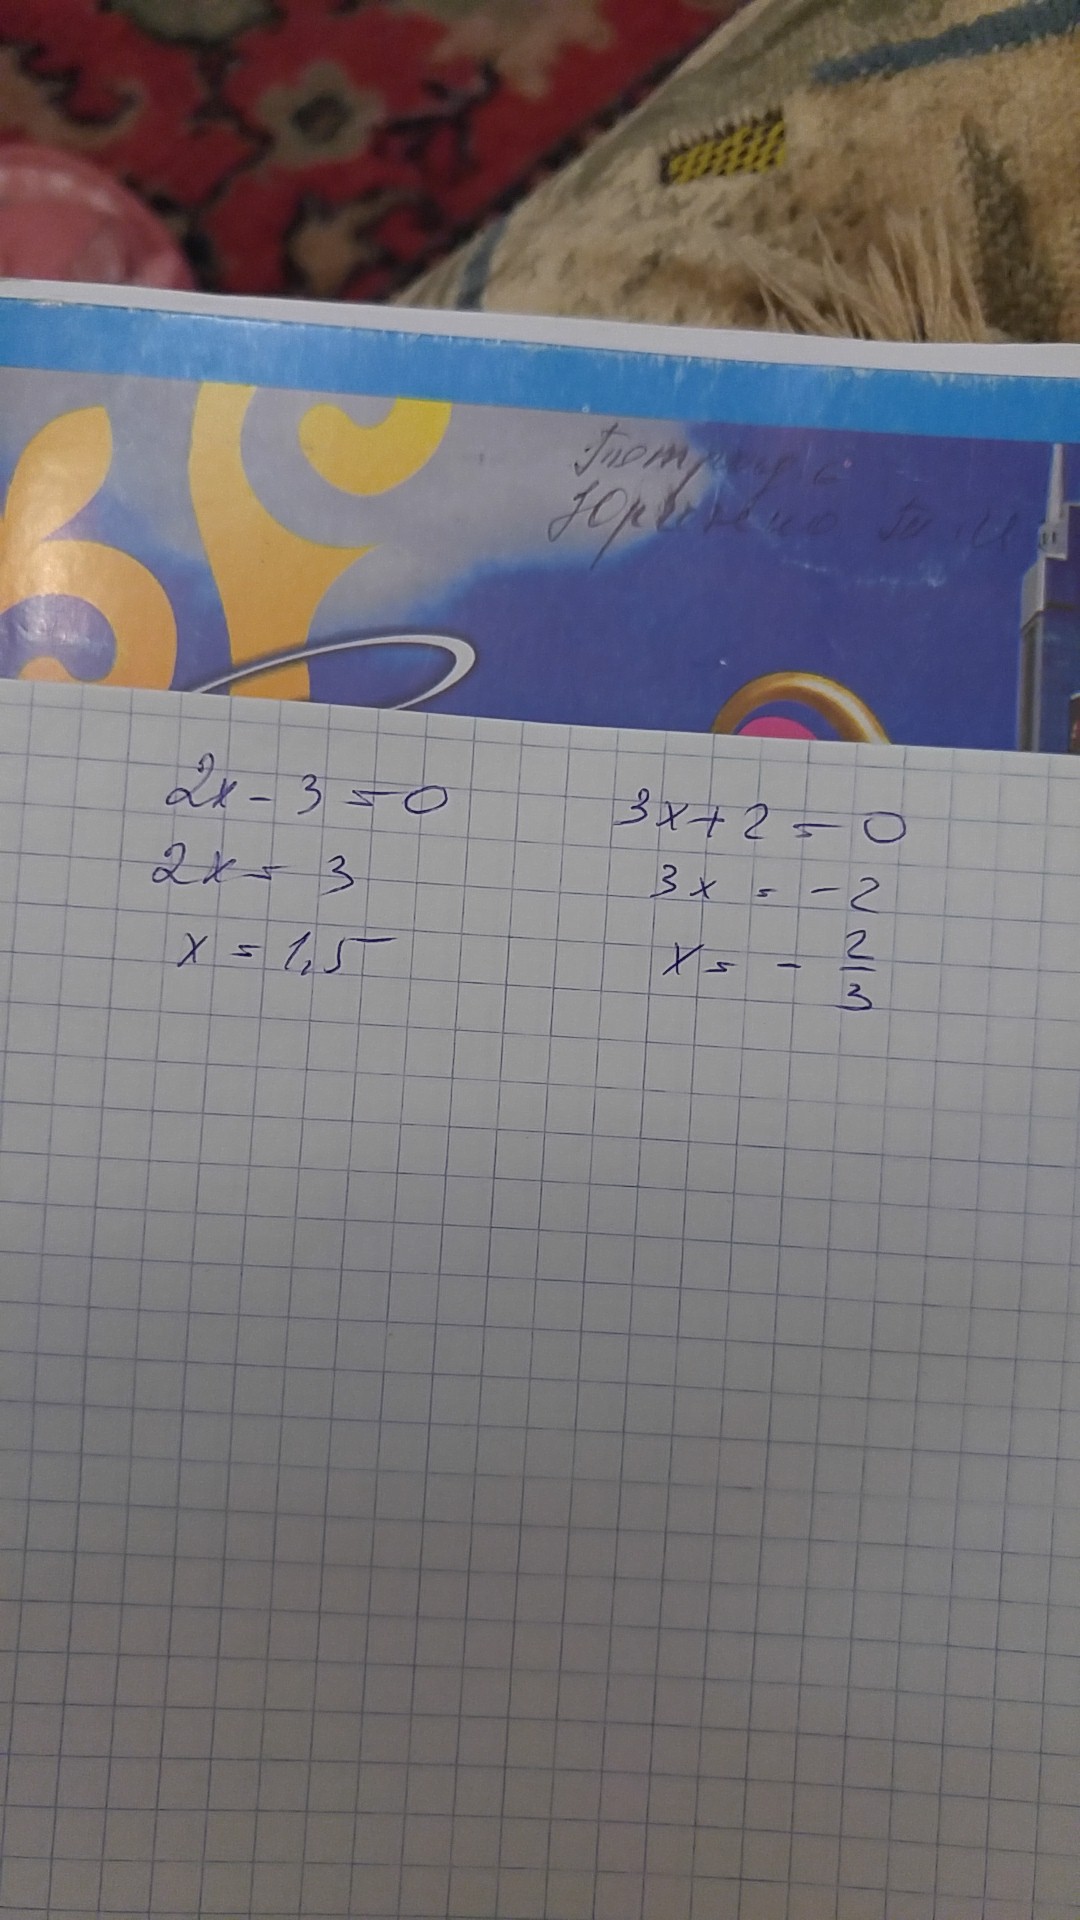 2x - 3 = 0
2x = 3
x = 1,5
3x + 2 = 0
3x = -2
x = - 2/3